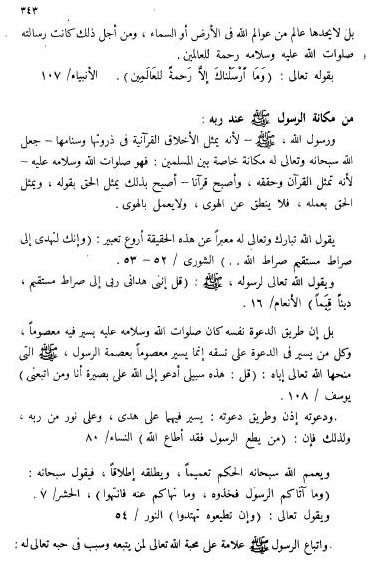 ٣٤٣
بل لايحدها عالم من عوالم الله فى الأرض أو السماء ، ومن أجل ذلك كانت رسالته
صلوات الله عليه وسلامه رحمة للعالمين .
بقوله تعالى : (وَمَا أَرْسَلْنَاكَ إِلاَّ رَحمةً للعَالَمِين) . الأنبياء/ ١٠٧
من مكانة الرسول ﷺ عند ربه :
ورسول الله ، ﷺ – لأنه يمثل الأخلاق القرآنية فى ذروتها وسنامها – جعل
الله سبحانه وتعالى له مكانة خاصة بين المسلمين : فهو صلوات الله وسلامه عليه –
لأنه تمثل القرآن وحققه ، وأصبح قرآنا – أصبح بذلك يمثل الحق بقوله ، ويمثل
الحق بعمله ، فلا ينطق عن الهوى ، ولايعمل بالهوى .
يقول الله تبارك وتعالى له معبراً عن هذه الحقيقة أروع تعبير : (وإنك لتهدى إلى
صراط مستقيم صراط الله . .) الشورى / ٥٢ – ٥٣ .
ويقول الله تعالى لرسوله ، ﷺ : (قل إننى هدانى ربى إلى صراط مستقيم ،
ديناً قِيَماً) الأنعام/ ١٦ .
بل إن طريق الدعوة نفسه كان صلوات الله وسلامه عليه يسير فيه معصوماً ،
وكل من يسير فى الدعوة على نسقه إنما يسير معصوماً بعصمة الرسول ، ﷺ التى
منحها الله تعالى إياه : (قل : هذه سبيلى أدعو إلى الله على بصيرة أنا ومن اتبعنى)
يوسف / ١٠٨ .
ودعوته إذن وطريق دعوته : يسير فيهما على هدى ، وعلى نور من ربه ،
ولذلك فإن : (من يطع الرسول فقد أطاع الله) النساء/ ٨٠
ويعمم الله سبحانه الحكم تعميماً ، ويطلقه إطلاقاً ، فيقول سبحانه :
(وما آتاكم الرسول فخذوه ، وما نهاكم عنه فانتهوا) ، الحشر/ ٧ .
ويقول تعالى : (وإن تطيعوه تهتدوا) النور / ٥٤
واتباع الرسول ﷺ علامة على محبة الله تعالى لمن يتبعه وسبب فى حبه تعالى له :